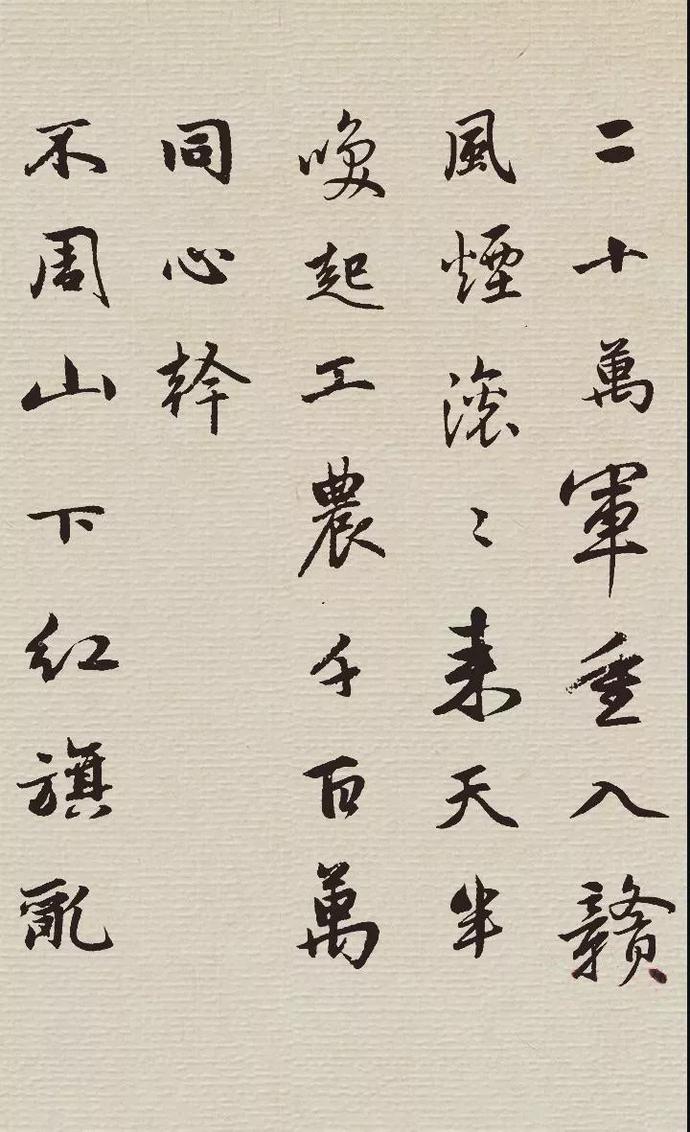 二十萬軍重入贛
風煙滚〻來天半
喚起工農千百萬
同心幹
不周山下紅旗亂